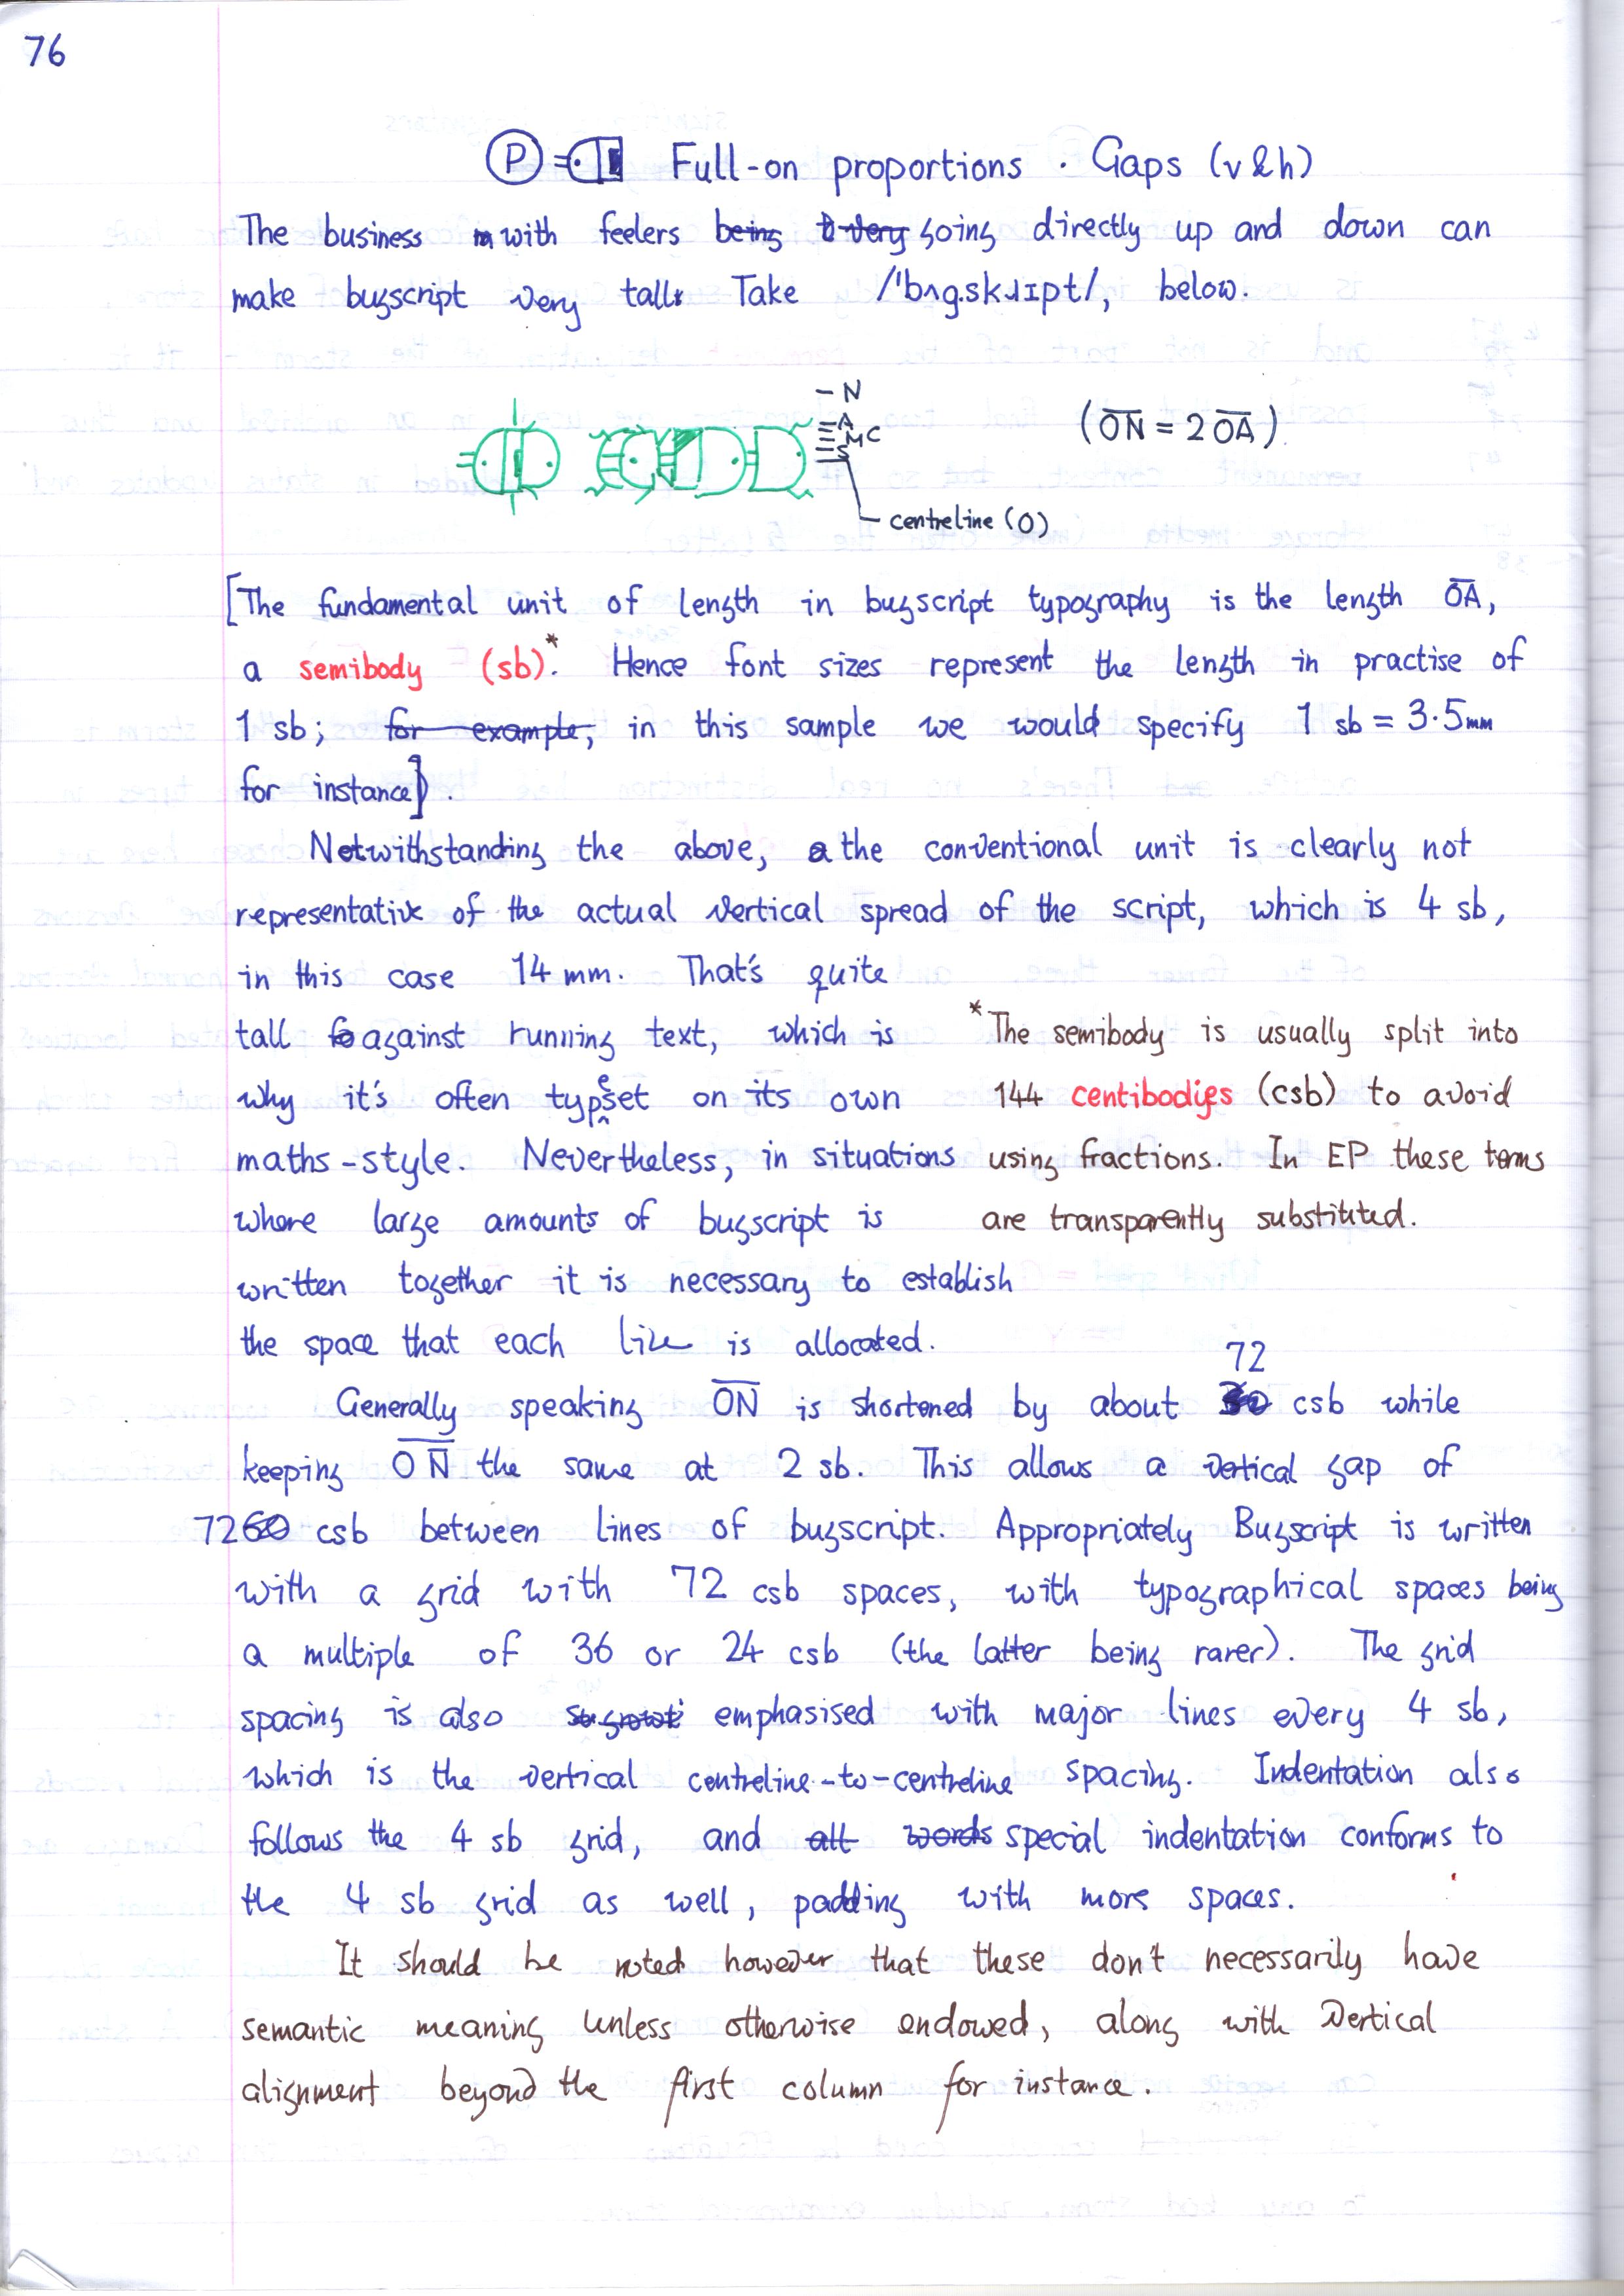 76
Ⓟ Full-on proportions · Gaps (v&h)
The business with feelers being very going directly up and down can
make bugscript very tall. Take /ˈbʌg.skɹɪpt/, below.
N
A
M C
S
(O̅N̅ = 2 O̅A̅)
centreline (O)
[The fundamental unit of length in bugscript typography is the length O̅A̅,
a semibody (sb)*. Hence font sizes represent the length in practise of
1 sb; for example, in this sample we would specify 1 sb = 3.5mm
for instance].
Notwithstanding the above, the conventional unit is clearly not
representative of the actual vertical spread of the script, which is 4 sb,
in this case 14 mm. That's quite
tall against running text, which is
why it's often typeset on its own
maths-style. Nevertheless, in situations
where large amounts of bugscript is
written together it is necessary to establish
the space that each line is allocated.
*The semibody is usually split into
144 centibodies (csb) to avoid
using fractions. In EP these terms
are transparently substituted.
Generally speaking O̅N̅ is shortened by about 72 csb while
keeping O̅N̅ the same at 2 sb. This allows a vertical gap of
72 csb between lines of bugscript. Appropriately Bugscript is written
with a grid with 72 csb spaces, with typographical spaces being
a multiple of 36 or 24 csb (the latter being rarer). The grid
spacing is also emphasised with major lines every 4 sb,
which is the vertical centreline-to-centreline spacing. Indentation also
follows the 4 sb grid, and all words special indentation conforms to
the 4 sb grid as well, padding with more spaces.
It should be noted however that these don't necessarily have
semantic meaning unless otherwise endowed, along with vertical
alignment beyond the first column for instance.